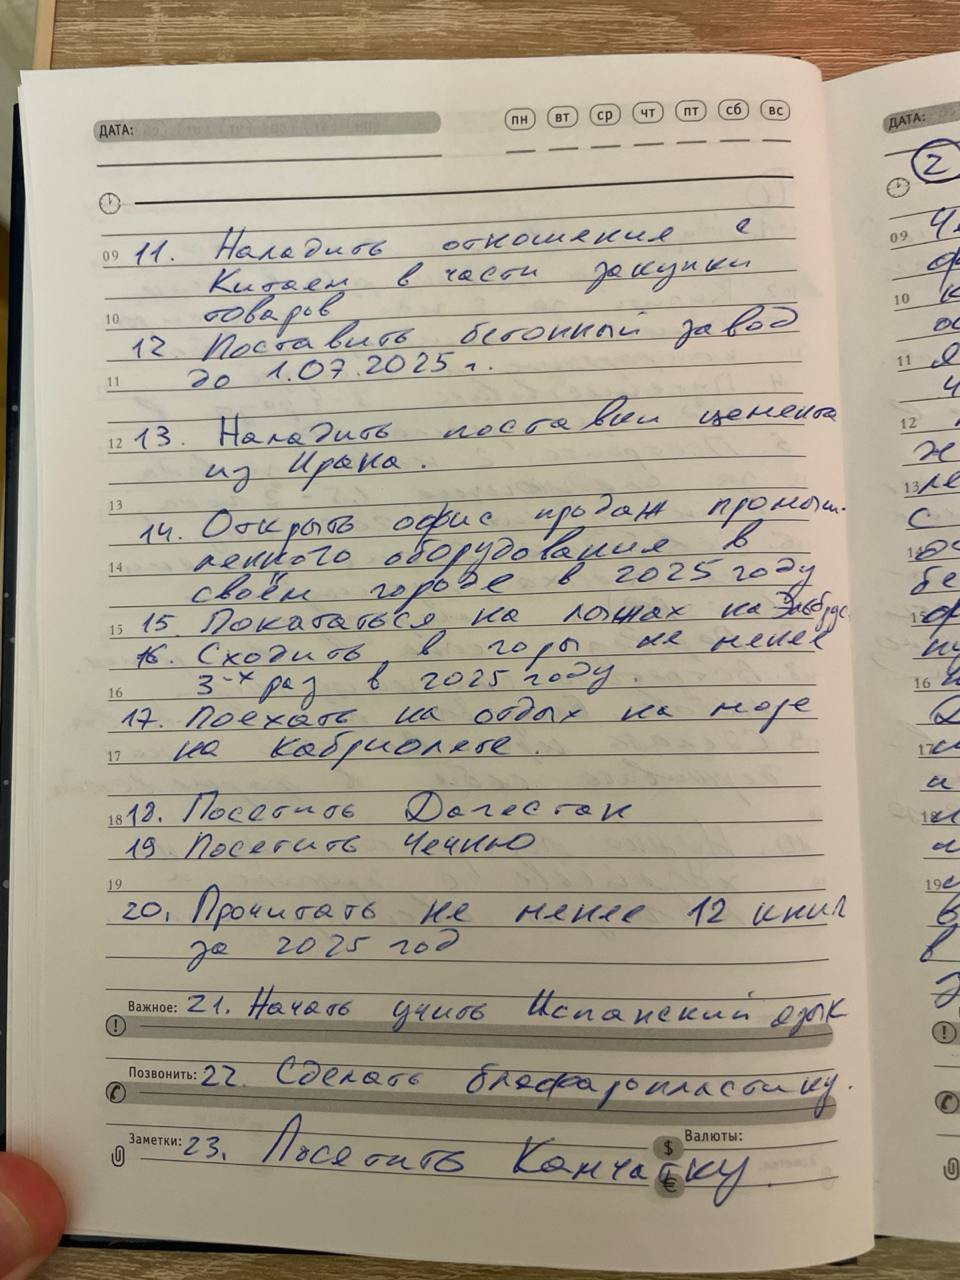 ДАТА:
пн вт ср чт пт сб вс
09 11. Наладить отношения с
Китаем в части закупки
10 товаров
12 Поставить бетонный завод
11 до 1.07.2025 г.
12 13. Наладить поставки цемента
из Ирана.
13
14. Открыть офис продаж промыш-
14 ленного оборудования в
своём городе в 2025 году
15 15. Покататься на лыжах на Эльбрус.
16. Сходить в горы не менее
16 3-х раз в 2025 году.
17. Поехать на отдых на море
17 на кабриолете.
18 18. Посетить Дагестан
19 Посетить Чечню
19
20. Прочитать не менее 12 книг
за 2025 год
Важное: 21. Начать учить Испанский язык
Позвонить: 22. Сделать блефаропластику.
Заметки: 23. Посетить Камчатку.
Валюты:
$
€
ДАТА:
2
09
10
11
12
13
14
15
16
17
18
19